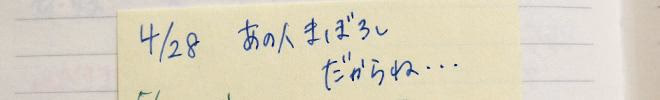 4/28 あの人まぼろし
だからね・・・